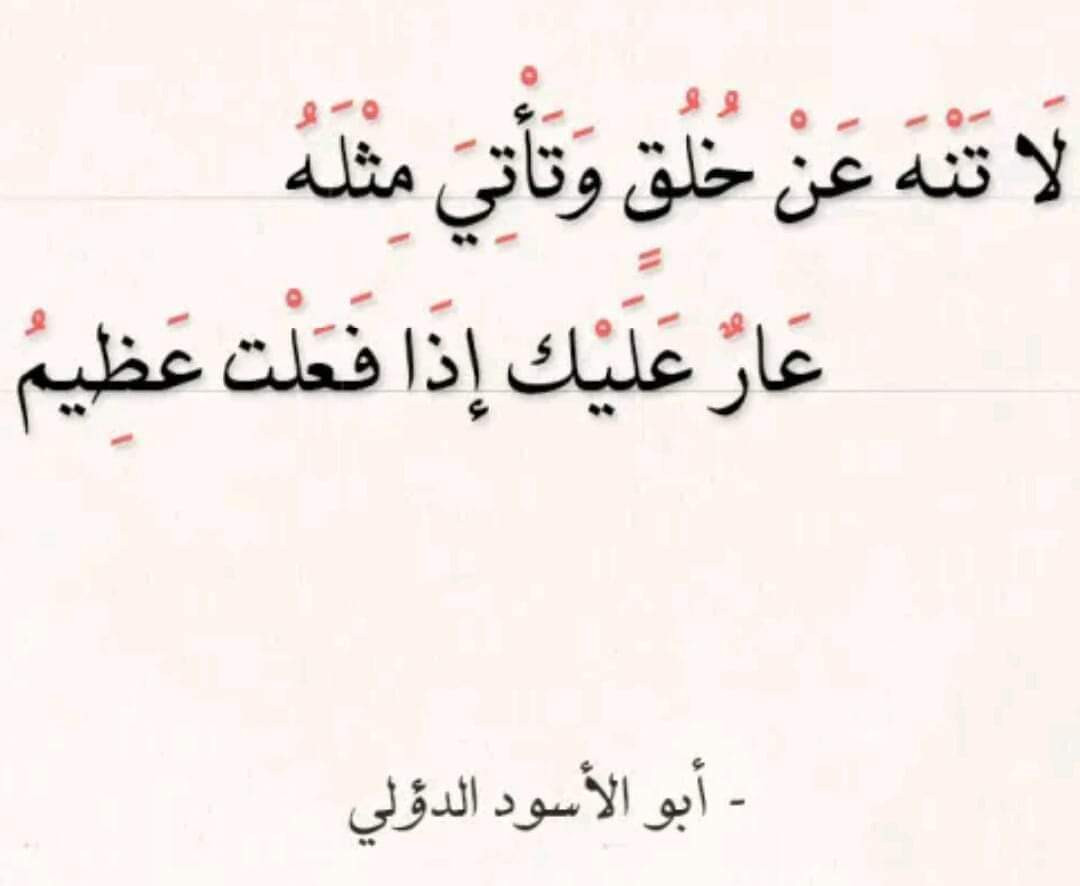 لَا تَنْهَ عَنْ خُلُقٍ وَتَأْتِيَ مِثْلَهُ
عَارٌ عَلَيْك إذَا فَعَلْت عَظِيمُ
- أبو الأسود الدؤلي